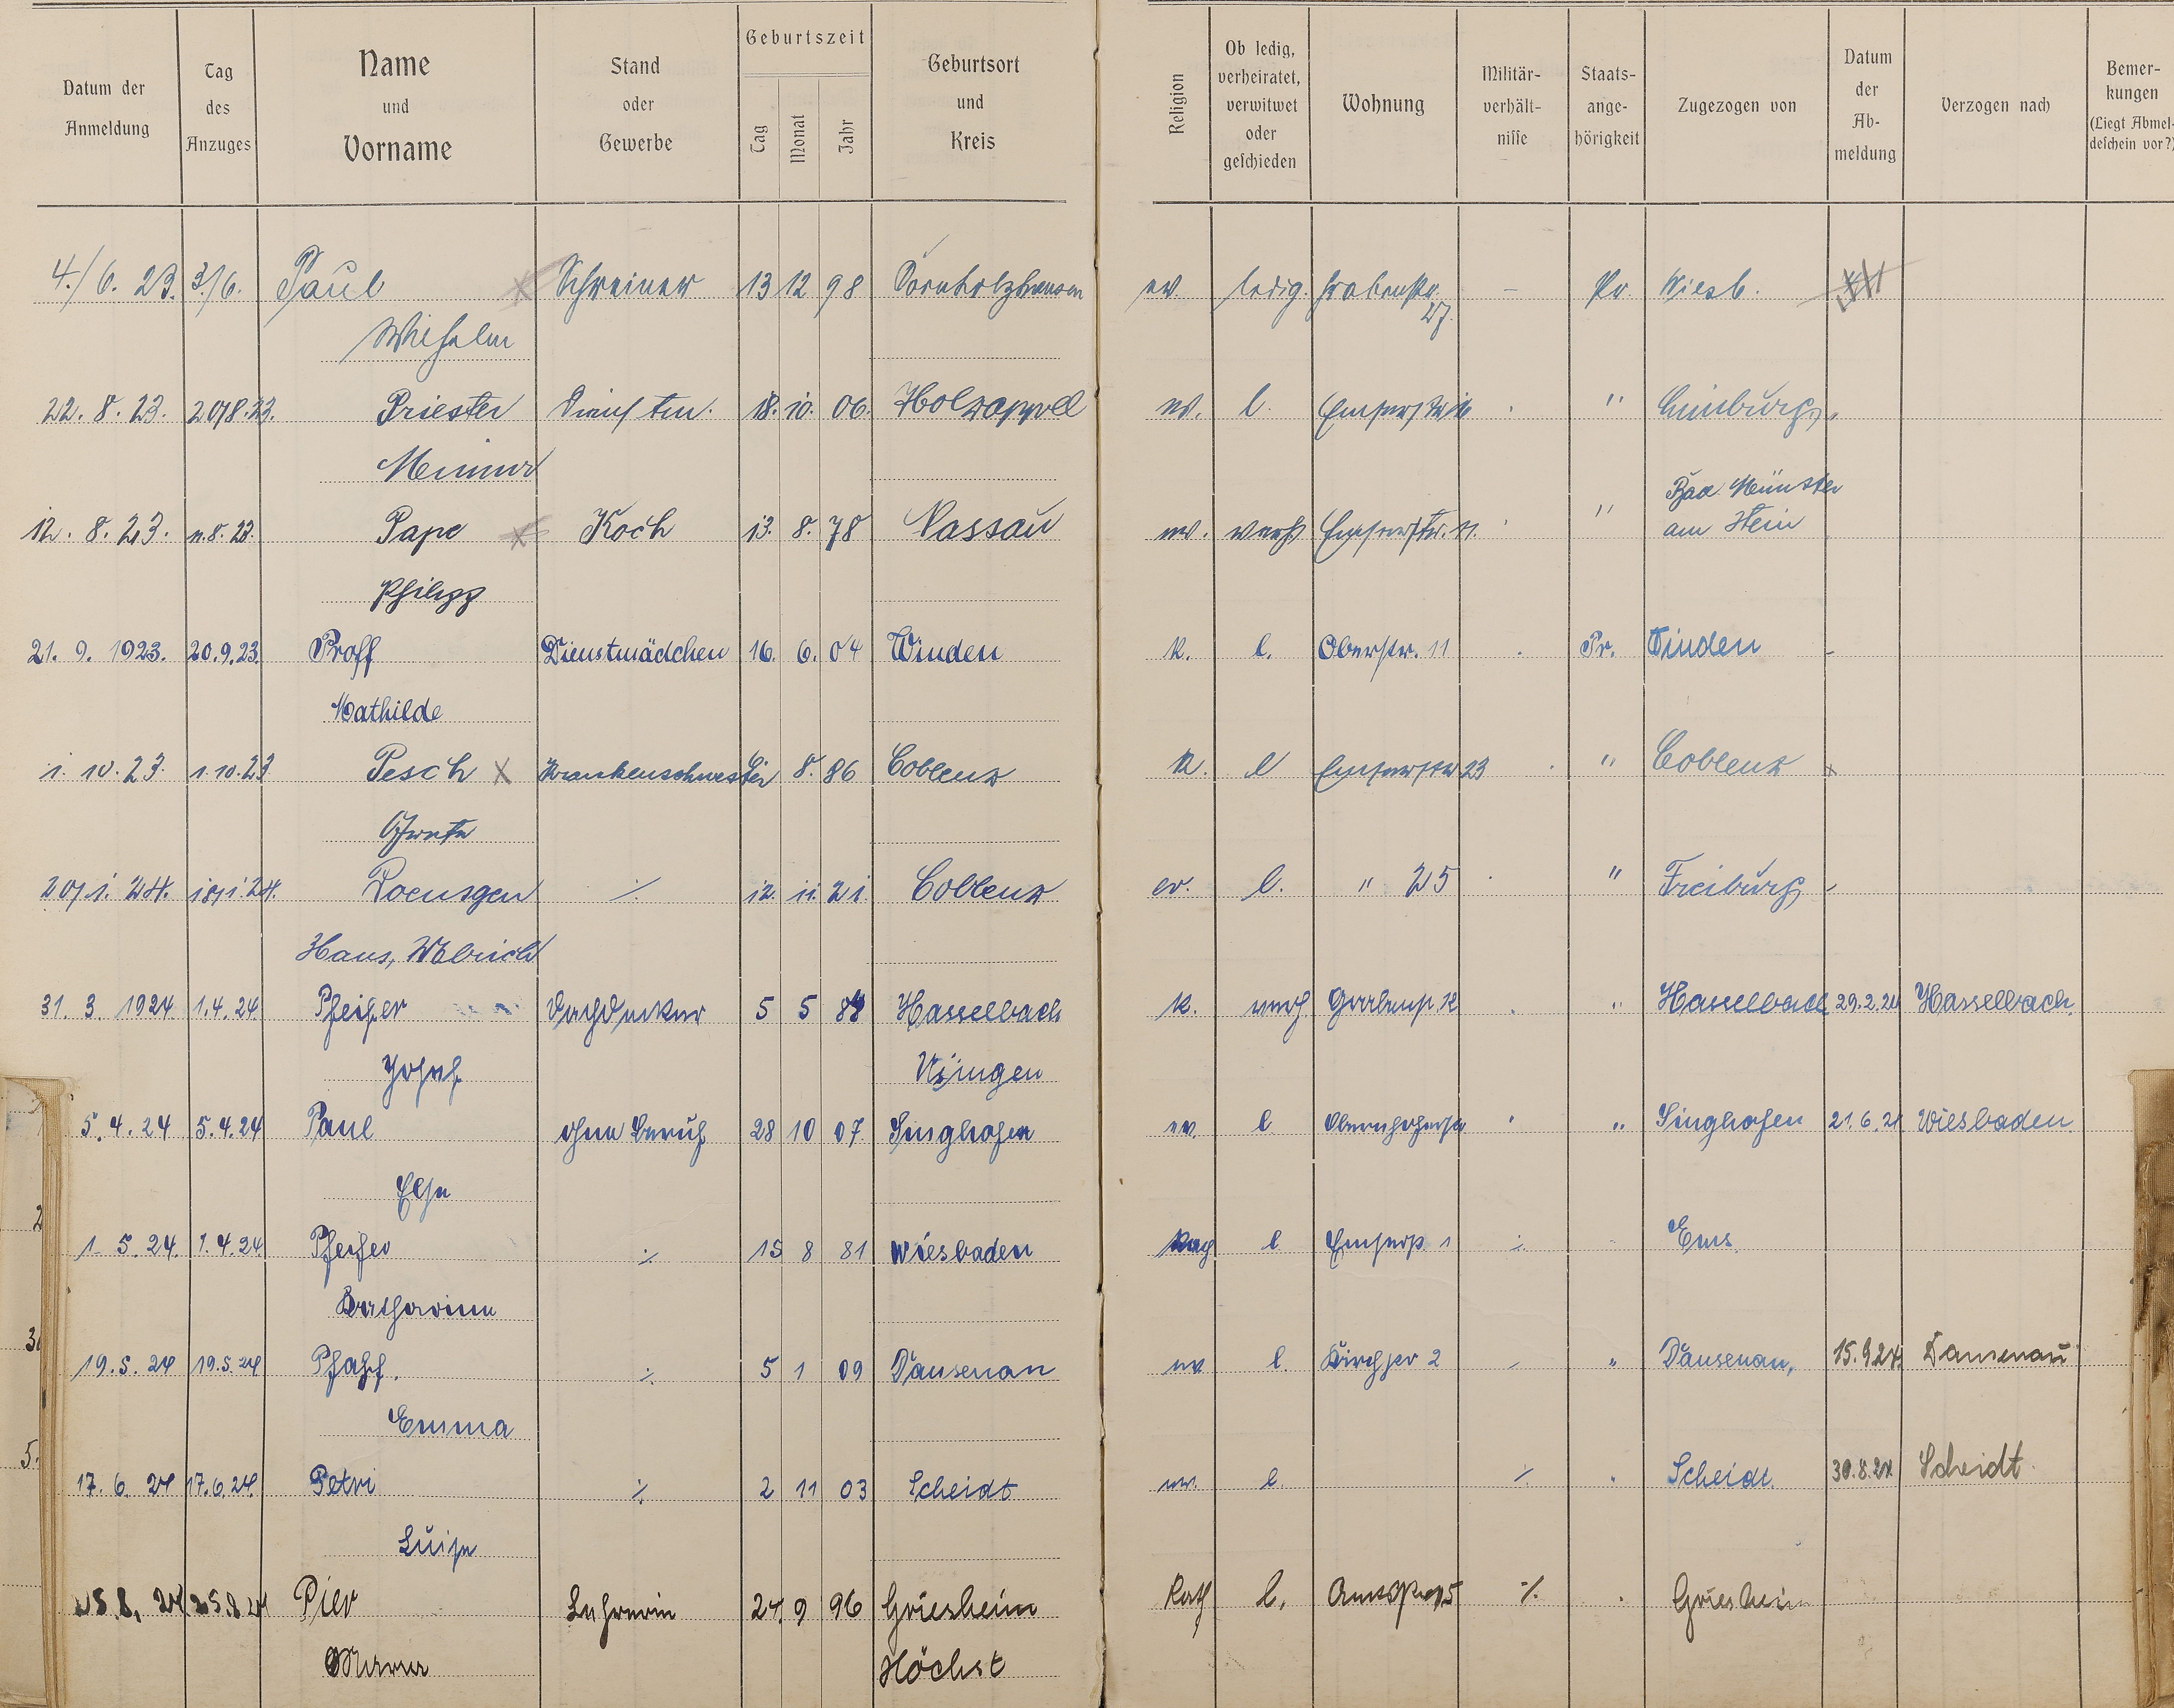 Datum der Anmeldung
Tag des Anzuges
Name und Vorname
Stand oder Gewerbe
Geburtszeit
Tag Monat Jahr
Geburtsort und Kreis
Religion
Ob ledig, verheiratet, verwitwet oder geschieden
Wohnung
Militär-verhält-nisse
Staats-ange-hörigkeit
Zugezogen von
Datum der Ab-meldung
Verzogen nach
Bemer-kungen (Liegt Abmel-deschein vor?)
4./6. 23. 3/6. Paul Schreiner 13 12 98 Dornholzhausen ev. ledig. Grabenstr. 27. - Pr. Wiesb.
Wilhelm
22. 8. 23. 20/8.23. Priester 18. 10. 06. Holzappel ev. l. " Limburg
12. 8. 23. 11.8.23. Pape Koch 13. 8. 78 Nassau ev. verh. Emserstr. 11. " Bad Münster am Stein
Philipp
21. 9. 1923. 20.9.23. Proff Dienstmädchen 16. 6. 04 Winden k. l. Oberstr. 11 Pr. Winden -
Mathilde
1. 10. 23. 1.10.23 Pesch Krankenschwester 8. 86 Coblenz k. l Emserstr 23 " Coblenz
20/1. 24. 18/1.24. ∕. 12. 11. 21. Coblenz ev. l. " 25 " Freiburg
Hans,
31. 3. 1924 1.4.24. Pfeifer Dachdecker 5 5 Hasselbach k. verh. " Hasselbach 29.2.24 Hasselbach.
Josef Usingen
5. 4. 24 5.4.24 Paul ohne Beruf 28 10 07 Singhofen ev. l " Singhofen 21.6.24 Wiesbaden.
Else
1. 5. 24 1.4.24 Pfeifer ∕. 15 8 81 Wiesbaden Kath l Emserstr. 1 ∕. Ems
Katharina
19. 5. 24 19.5.24 Pfaff. ∕. 5 1 09 Dausenau ev l. Kirchstr 2 " Dausenau, 15.9.24 Dausenau
Emma
17. 6. 24 17.6.24. Petri ∕. 2 11 03 Scheidt ev. l. ∕. " Scheidt. 30.8.24 Scheidt.
Luise
25. 8. 24 25.8.24 Pier Lehrerin 24. 9 96 Griesheim Kath l. ∕. Griesheim
Maria Höchst